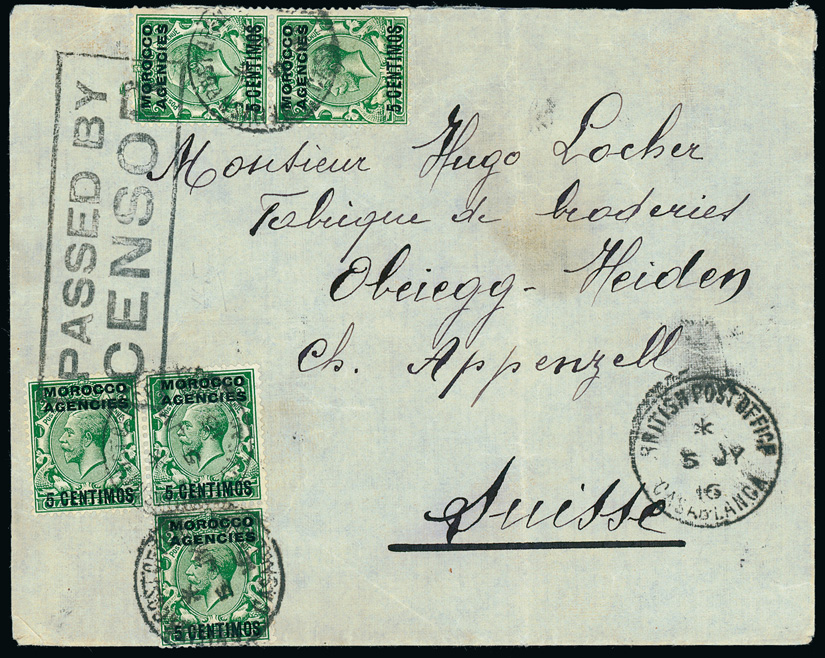 MOROCCO
AGENCIES
5 CENTIMOS
MOROCCO
AGENCIES
5 CENTIMOS
PASSED BY
CENSOR
Monsieur Hugo Locher
Fabrique de broderies
Obeiegg - Heiden
Ch. Appenzell
Suisse
MOROCCO
AGENCIES
5 CENTIMOS
MOROCCO
AGENCIES
5 CENTIMOS
MOROCCO
AGENCIES
5 CENTIMOS
BRITISH POST OFFICE
*
5 JA
16
CASABLANCA